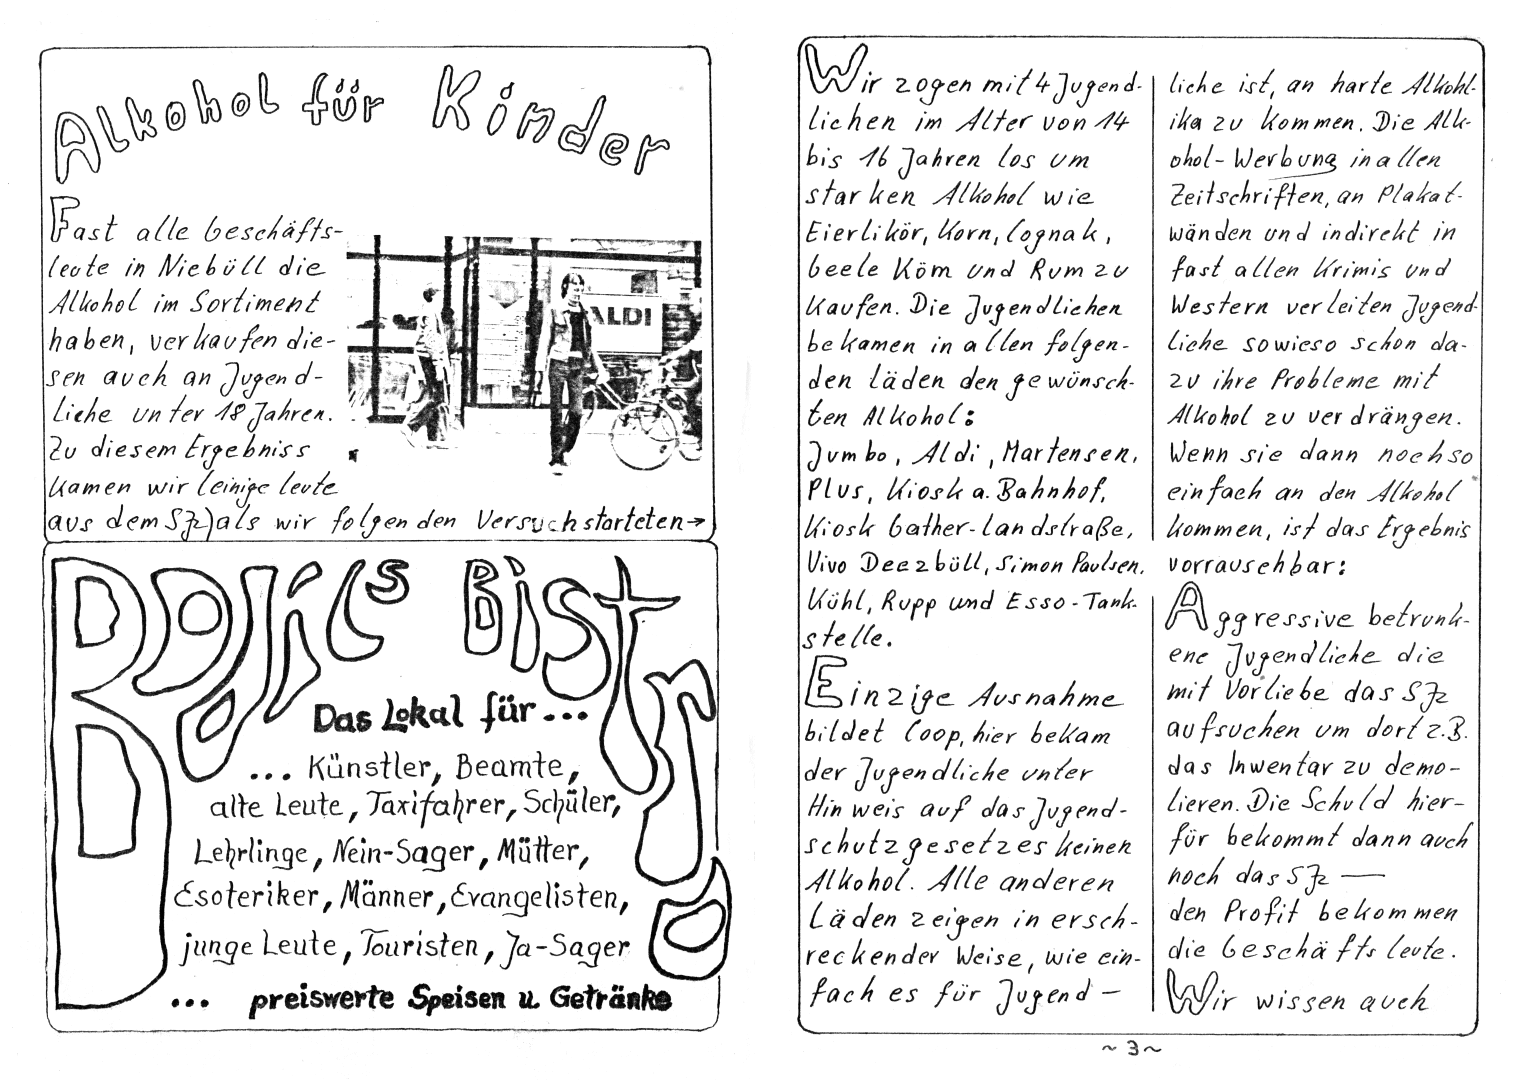 Alkohol für Kinder
Fast alle Geschäfts-
leute in Niebüll die
Alkohol im Sortiment
haben, verkaufen die-
sen auch an Jugend-
liche unter 18 Jahren.
Zu diesem Ergebniss
kamen wir (einige leute
aus dem SJz) als wir folgenden Versuch starteten→
ALDI
Bistro
Das Lokal für...
... Künstler, Beamte,
alte Leute, Taxifahrer, Schüler,
Lehrlinge, Nein-Sager, Mütter,
Esoteriker, Männer, Evangelisten,
junge Leute, Touristen, Ja-Sager
... preiswerte Speisen u. Getränke
Wir zogen mit 4 Jugend-
lichen im Alter von 14
bis 16 Jahren los um
starken Alkohol wie
Eierlikör, Korn, Cognak,
Geele Köm und Rum zu
kaufen. Die Jugendlichen
bekamen in allen folgen-
den läden den gewünsch-
ten Alkohol:
Jumbo, Aldi, Martensen,
Plus, Kiosk a. Bahnhof,
Kiosk Gather-landstraße,
Vivo Deezbüll, Simon Paulsen,
Kühl, Rupp und Esso-Tank-
stelle.
Einzige Ausnahme
bildet Coop, hier bekam
der Jugendliche unter
Hinweis auf das Jugend-
schutzgesetzes keinen
Alkohol. Alle anderen
Läden zeigen in ersch-
reckender Weise, wie ein-
fach es für Jugend-
liche ist, an harte Alkohl-
ika zu kommen. Die Alk-
ohol-Werbung in allen
Zeitschriften, an Plakat-
wänden und indirekt in
fast allen Krimis und
Western verleiten Jugend-
liche sowieso schon da-
zu ihre Probleme mit
Alkohol zu verdrängen.
Wenn sie dann noch so
einfach an den Alkohol
kommen, ist das Ergebnis
vorrauschbar:
Aggressive betrunk-
ene Jugendliche die
mit Vorliebe das SJz
aufsuchen um dort z.B.
das Inwentar zu demo-
lieren. Die Schuld hier-
für bekommt dann auch
noch das SJz —
den Profit bekommen
die Geschäftsleute.
Wir wissen auch
~ 3 ~